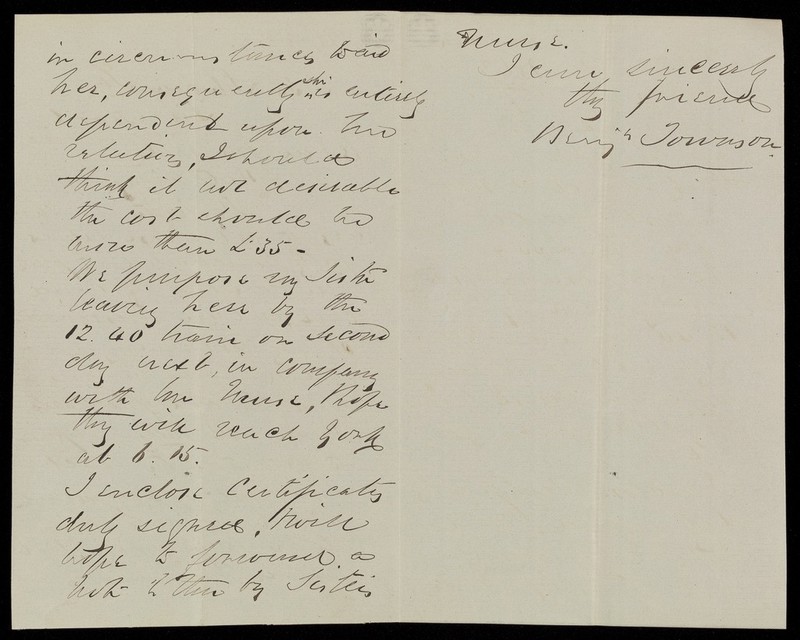 in circumstances to aid
her, consequently she is entirely
dependent upon her
relatives, I should
think it not desirable
the cost should be
more than £35 -
We purpose my Sister
leaving here by the
12.40 train on second
day next, in company
with her Nurse, & hope
they will reach York
at 6.15.
I enclose Certificates
duly signed, & will
hope to forward a
note to thee by Sister's
Nurse.
I am sincerely
thy friend
Benjn Townson